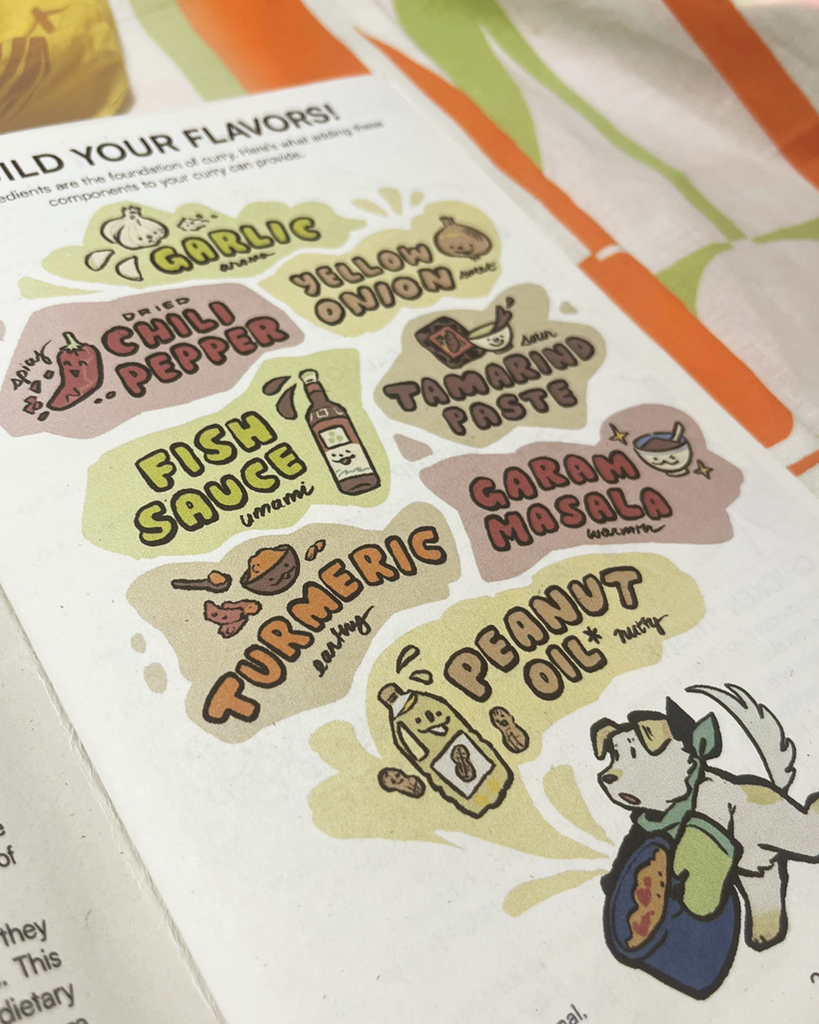 ILD YOUR FLAVORS!
edients are the foundation of curry. Here's what adding these
components to your curry can provide.
GARLIC
aroma
YELLOW
ONION
sweet
DRIED
CHILI
PEPPER
spicy
sour
TAMARIND
PASTE
FISH
SAUCE
umami
GARAM
MASALA
warmth
TURMERIC
earthy
PEANUT
OIL*
nutty
of
they
. This
dietary